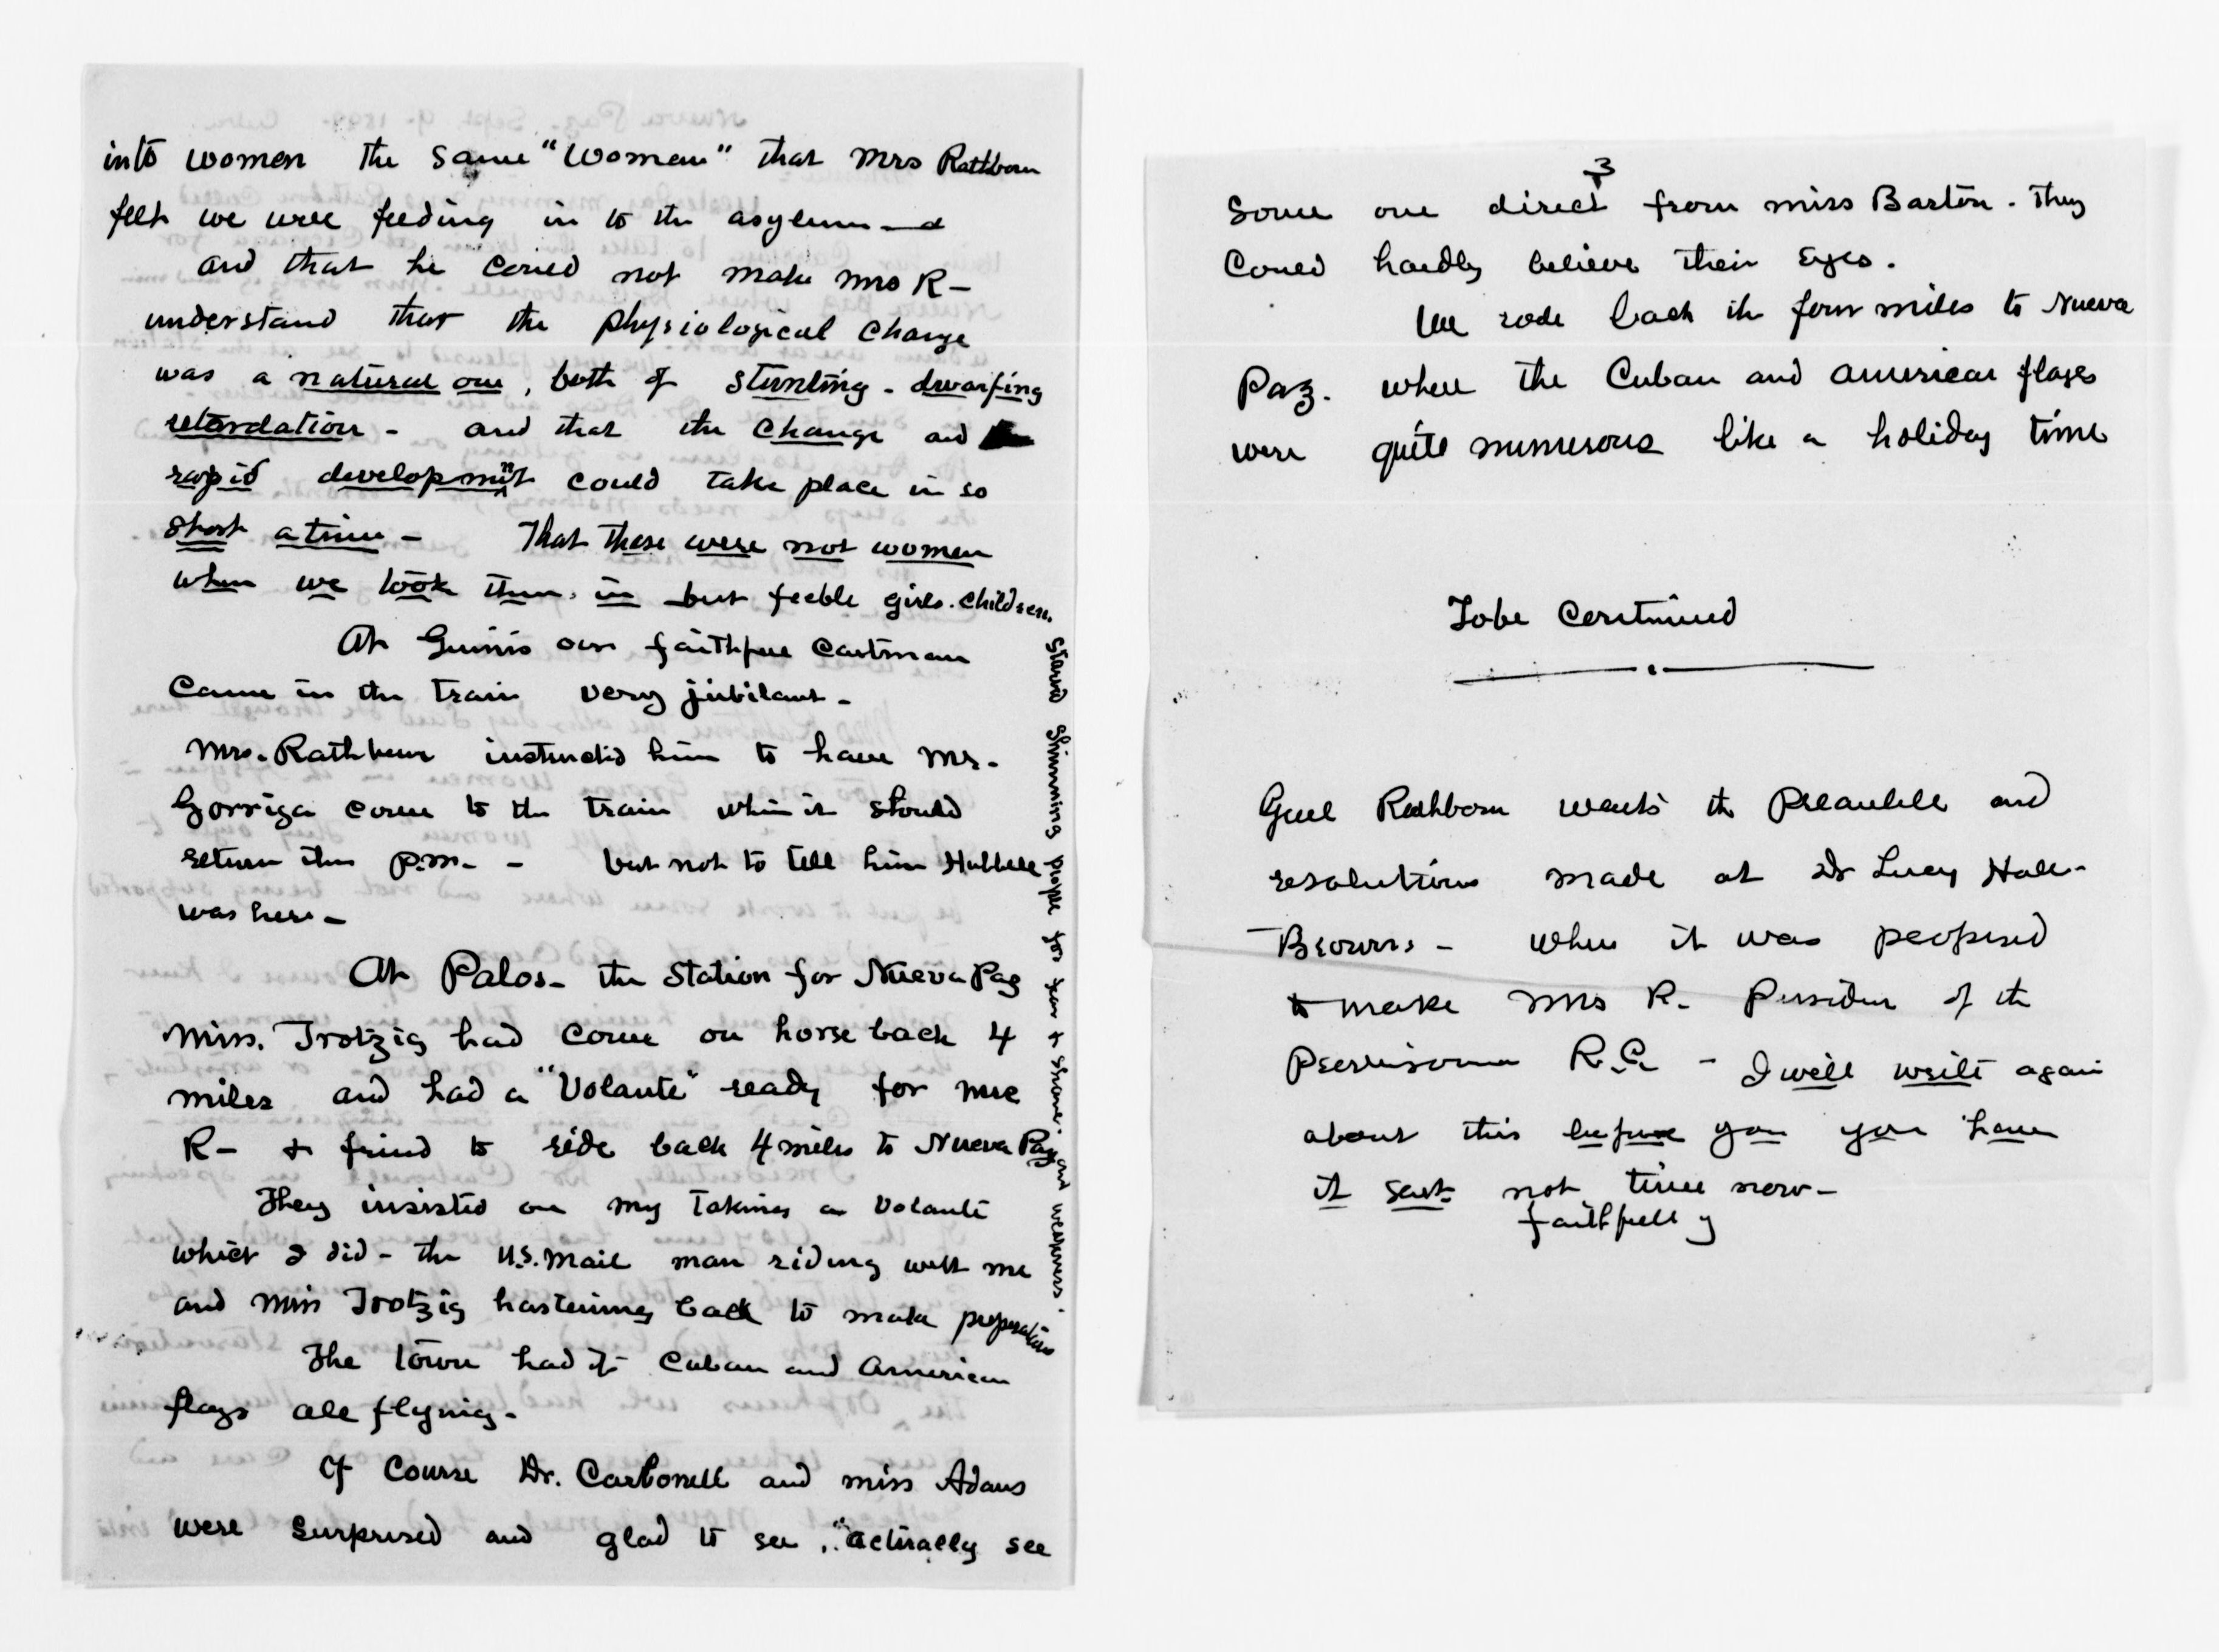 into women the same "Women" that Mrs Rathbon
felt we were feeding in to the asylum — &
and that he could not make Mrs R-
understand that the physiological change
was a natural one, both of stunting - dwarfing
retardation - and that the change and
rapid developmnt could take place in so
short a time - That these were not women
when we took them in but feeble girls. children.
starvd skinning people for fear & shame. and weepness.
At Guinis our faithful cartman
came in the train very jubilant -
Mrs. Rathbun instructid him to have Mr.
Gorriga come to the train when it should
return this p.m. - but not to tell him Hubbell
was here -
At Palos - the station for Nueva Paz
Miss. Trotzig had come on horse back 4
miles and had a "Volante" ready for
R- & friend to ride back 4 miles to Nueva Paz
They insisted on my taking a Volante
which I did - the U.S. Mail man riding with me
and Miss Trotzig hastening back to make preperations
The town had its Cuban and American
flags all flying.
Of course Dr. Carbonell and miss Adams
were surprised and glad to see, "actually see
3
some one direct from miss Barton. They
could hardly believe their eyes.
We rode back the four miles to Nueva
Paz. where the Cuban and american flags
were quite numerous like a holiday time
To be Continued
Genl Rathborn wants the Preamble and
resolutions made at Dr Lucy Hall-
Browns - when it was proposed
to make Mrs R. President of the
R.C. - I will write again
about this before you you have
it sent not time now -
faithfully